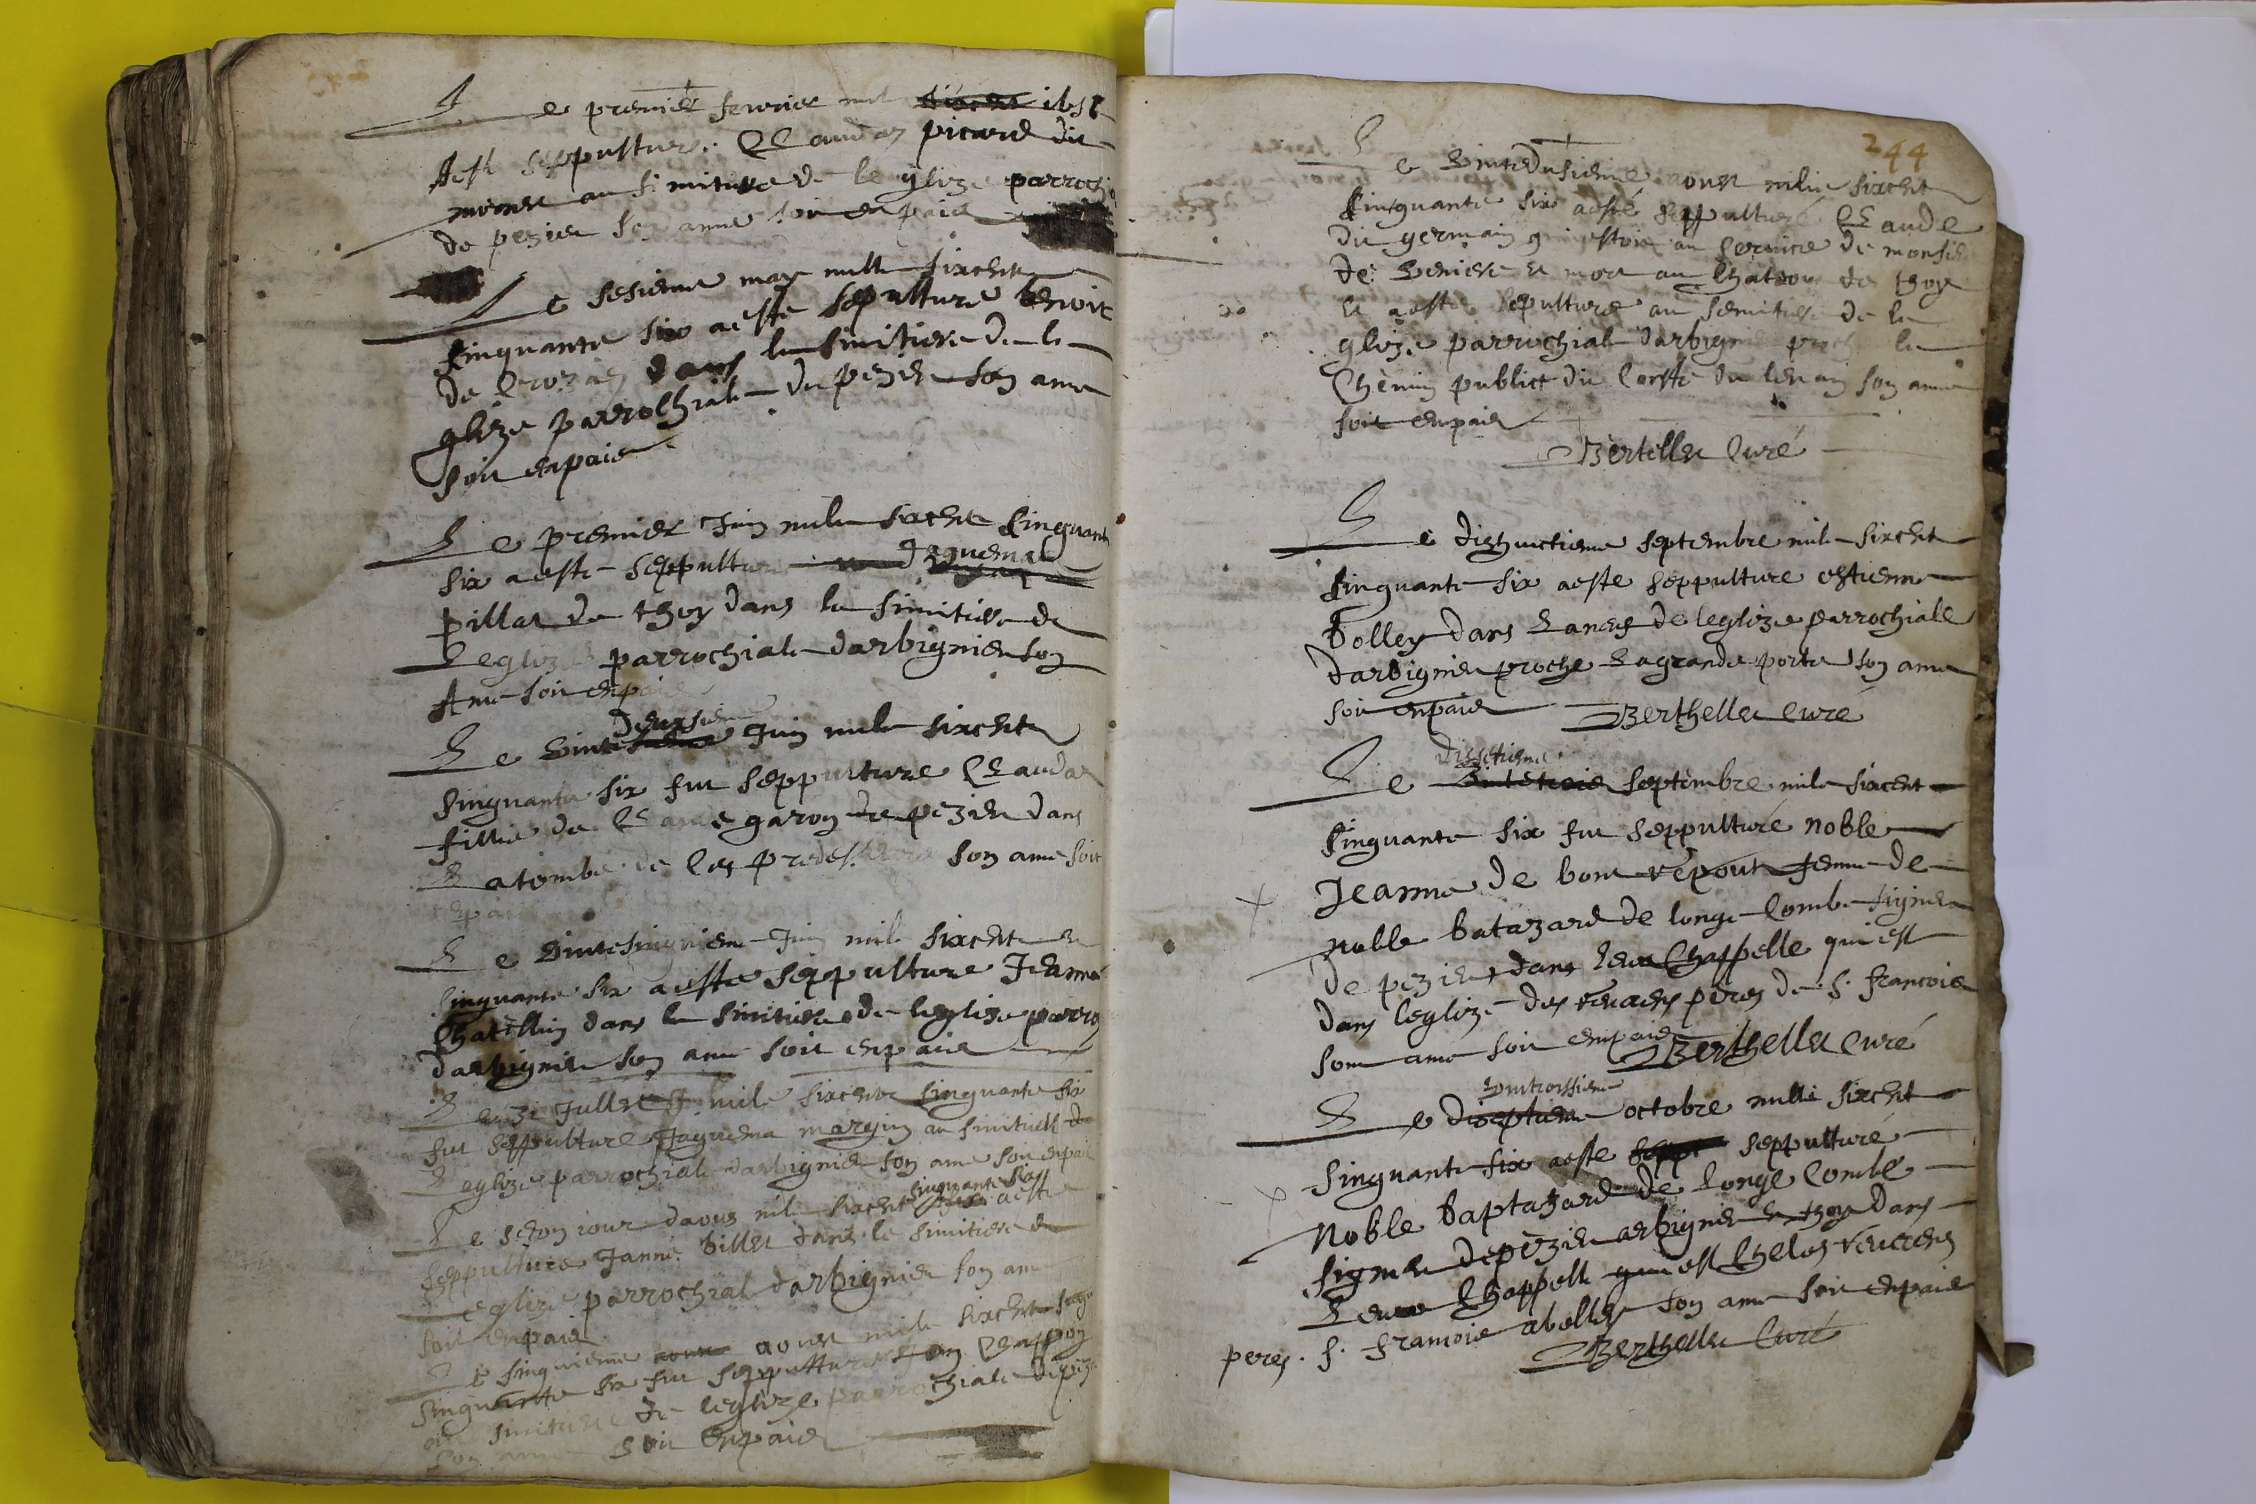 Le premier fevrier mil
este seppulture Claudaz picard dit
au simitiere de leglize parrochi
de pezieu son ame soit en paix
Le sesieme may mille sixcent
singuante six aeste sepulture benoit
de dans le simitiere de le
glize parrochiale de pezieu son ame
soit enpaix
Le premier Juin mile sixcent singuante
six aeste seppulture Jaquema
pillat de thoy dans le simitiere de
Leglize parrochiale darbignieu son
Ame soit enpaix
Le vinte deuxsieme Juin mile sixcent
singuante six fut seppulture Claudaz
fillie de Claude garon de pezieu dans
La tombe de ses predesseseurs son ame soit
enpaix
Le vintesinquieme Juin mile sixcent et
singuante six aeste seppulture Jeanne
Chatillin dans le simitiere de leglize parro
darbignieu son ame soit enpaix
Le Jullet mile sixcent singuante six
fut seppulture Jaquema margin au simitiere de
Leglize parrochiale darbignieu son ame soit enpaix
Le segon iour daoust mile sixcent singuante six aeste
seppulture Janne billet dans le simitiere de
Leglize parrochial darbignieu son ame
soit enpaix
Le sinquieme aoust mile sixcent
singuante six fut seppulture
au simitiere de leglize parrochiale de pezieu
son ame soit enpaix
244
Le vintedusieme aoust mille sixcent
singuante six aesté seppulturé Claude
dit germain qui estoit au service de monsie
de et mort au Chateau de thoy
et aesté sepulture au semitiere de le
glize parrochiale darbignieu proche le
Chemin publict du Costé du levain son ame
soit enpaix
Bertellet Curé
Le dizhuictieme septembre mile sixcent
singuante six aeste seppulture estienne
bolley dans Laners de leglize parrochialle
darbignieu proche La grande porte son ame
soit enpaix Berthellet Curé
Le dissetieme septembre mile sixcent
singuante six fut seppulturé noble
Jeanne de bone repout femme de
noble batazard de longe Combe signeu
de pezieu dans leur Chappelle qui est
dans leglize des reverens peres de s. francois
som ame soit enpaix Berthellet Curé
Le vintroissieme octobre mille sixcent
singuante six aeste seppulturé
Noble baptazard de Longe Combe
signeu de pezieu arbignieu et thoy dans
Leur Chappelle qui est Chelos reverens
peres. s. francois abelley son ame soit enpaix
Berthellet Curé